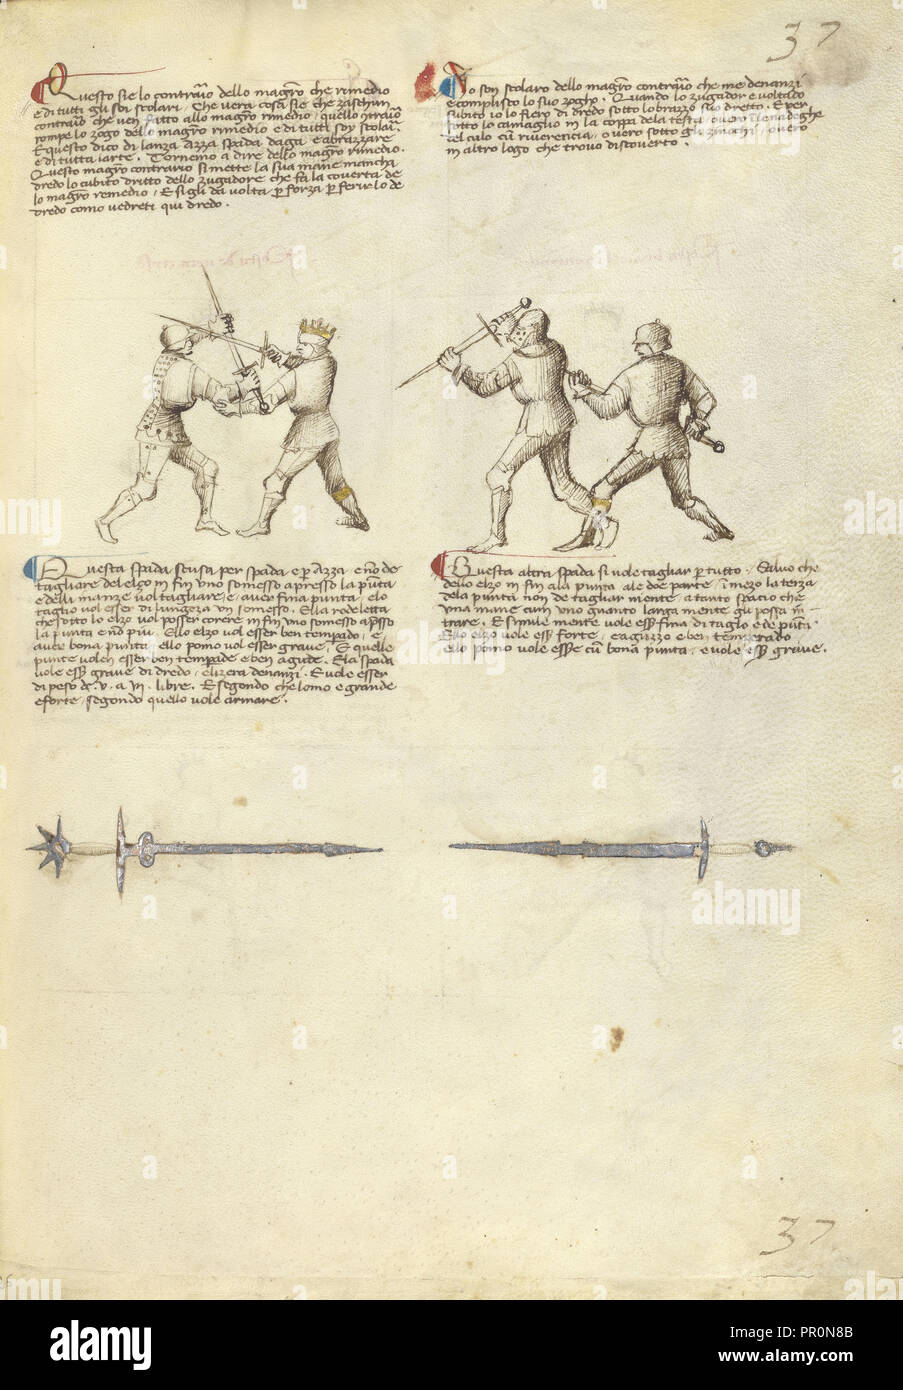 37
Questo sie lo contrario dello magistro che rimedio
e di tutti gli soi scolari. Che vera cosa sie che zaschun
contrario che ven fatto allo magistro rimedio, quello contrario
rompe lo zogo dello magistro rimedio e di tutti soy scolari.
E questo dico di lanza Azza spada daga e abrazzare
e di tutta larte. Tornemo a dire dello magistro rimedio.
Questo magistro contrario si mette la sua mane mancha
dredo lo cubito dritto dello zugadore che fa la coverta de
lo magistro remedio, E si gli da volta per forza per ferirlo de
dredo como vedreti qui dredo.
Io son scolaro dello magistro contrario che me denanzi
e complisco lo suo zogho. Quando lo zugador e voltado
subito io lo fiero di dredo sotto lo brazzo suo dretto. E per
sotto lo camaglio in la coppa dela testa, overo in le nadeghe
del culo cum riverencia, overo sotto gli zinochi, overo
in altro logo che trovo discoverto.
Questa spada scusa per spada e per Azza e no de
tagliare del elzo in fin uno somesso apresso la punta
e delli manze vol tagliare e aver fina punta, elo
taglio vol esser di lungeza un somesso. Ella rodeletta
che sotto lo elzo vol posser corere in fin uno somesso apresso
la punta e no piu. Ello elzo vol esser ben tempado, e
aver bona punta, ello pomo vol esser grave, E quelle
punte volen esser ben temprade e ben agude. E la spada
vole esser grave di dredo, e lizera denanzi. E vole esser
di peso de .v. a .VII. libre. E segondo che lomo e grande
e forte, segondo quello vole armare.
Questa altra spada si vole tagliar per tutto. Salvo che
dello elzo in fin ala punta ale doe parte, in mezo la terza
dela punta non de tagliar mente, a tanto spacio che
una mane cum uno guanto larga mente gli possa in
trare. E simile mente vole esser fina di taglo e de punta.
E lo elzo vole esser forte, e aguzzo e ben temperado
ello pomo vole esser cum bona punta, e vole esser grave.
37
alamy
Image ID: PR0N8B
www.alamy.com